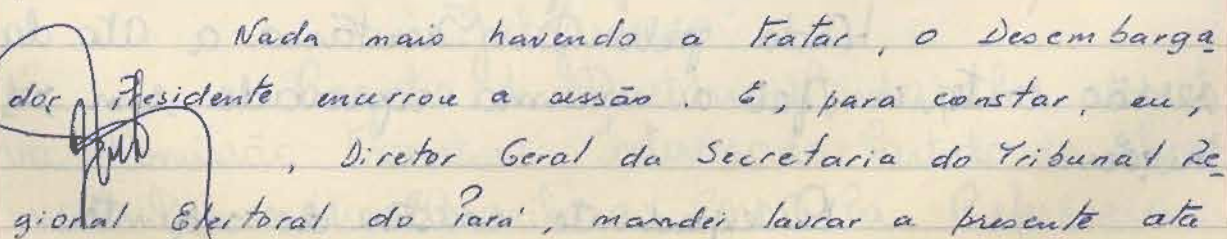 Nada mais havendo a tratar, o Desembarga
dor Presidente encerrou a sessão. E, para constar, eu,
, Diretor Geral da Secretaria do Tribunal Re
gional Eleitoral do Pará, mandei lavrar a presente ata